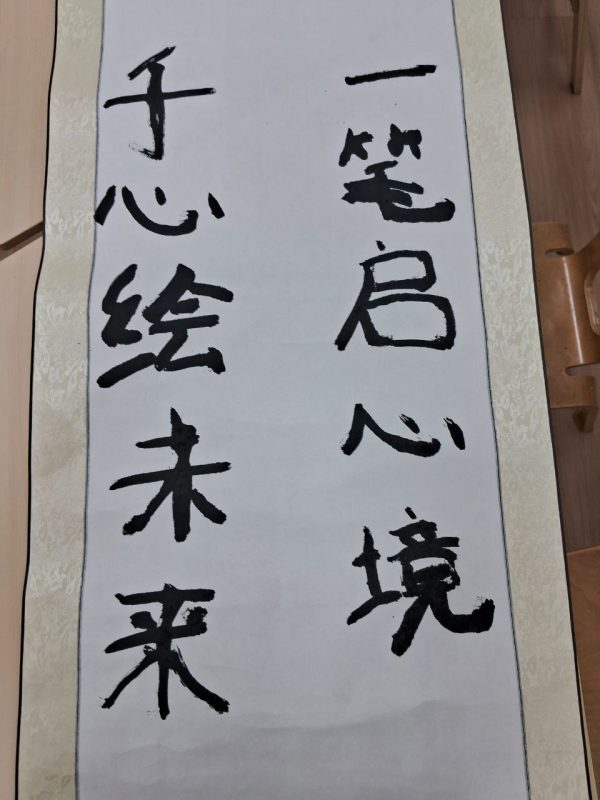 一笔启心境
千心绘未来